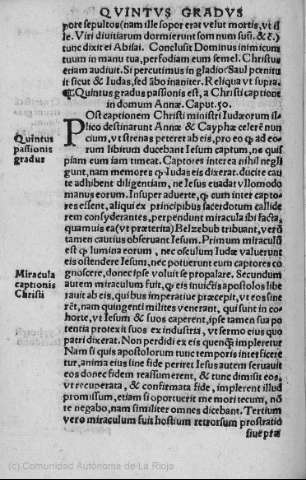 QVINTVS GRADVS
pore sepultos (nam ille sopor erat velut mortis, vt il-
le. Viri diuitiarum dormierunt somnum suũ. & č.)
tunc dixit ei Abisai. Conclusit Dominus inimicum
tuum in manu tua, per fodiam eum semel. Christus
etiam audiuit. Si percutimus in gladio: Saul pœnitu
it sicut & Iudas, sed abso inaniter. Reliqua vt supra.
¶Quintus gradus passionis est, a Christi captione
in domum Annæ. Caput. 50.
Quintus
passionis
gradus
POst captionem Christi ministri Iudæorum il-
lico destinarunt Annæ & Cayphæ celerē nun
cium, vt strenas peteret ab eis, pro eo qͥ ad eo-
rum libitum ducebant Iesum captum, ne quis
piam eum iam timeat. Captores interea nihil negli
gunt, nam memores qͥ Iudas eis dixerat. ducite cau
te adhibent diligentiam, ne Iesus euadat vllomodo
manus eorum. Insuper aduerte, qͥ cum inter capto-
res essent, aliqui ex principibus sacerdotum callide
rem consyderantes, perpendunt miracula ibi facta,
quamuis ea (vt præterita) Belzebub tribuant, verũ
tamen cautius obseruant Iesum. Primum miraculũ
est qͥ lumina eorum, nec osculum Iudæ valuerunt
eis ostendere Iesum, nec potuerunt eum captores co
gnoscere, donec ipse voluit se propalare. Secundum
Miracula
captionis
Christi
autem miraculum fuit, qͥ eis inuictis apostolos libe
rauit ab eis, quibus imperatiue præcepit, vt eos sine
rēt, nam quingenti milites venerant, qui sunt in co-
horte, vt Iesum & suos caperent, ipse tamen sua po
tentia protexit suos ex industria, vt sermo eius quo
patri dixerat. Non perdidi ex eis quenqͣ impleretur
Nam si quis apostolorum tunc temporis interficere
tur, anima eius sine fide periret Iesus autem seruauit
eos donec fidem reassumerent, & tunc dimisit eos,
vt recuperata, & confirmata fide, implerent illud
promissum, etiam si oportuerit me mori tecum, nõ
te negabo, nam similiter omnes dicebant. Tertium
vero miraculum fuit hostium retrorsum prostratio
siue præ
(c) Comunidad Autónoma de La Rioja